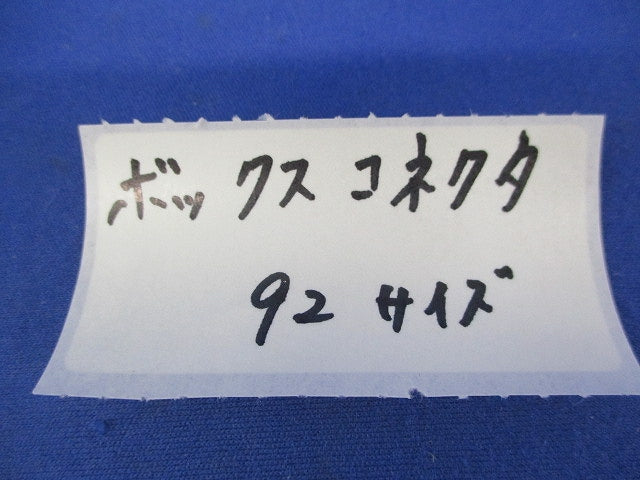 ボックスコネクタ
92サイズ